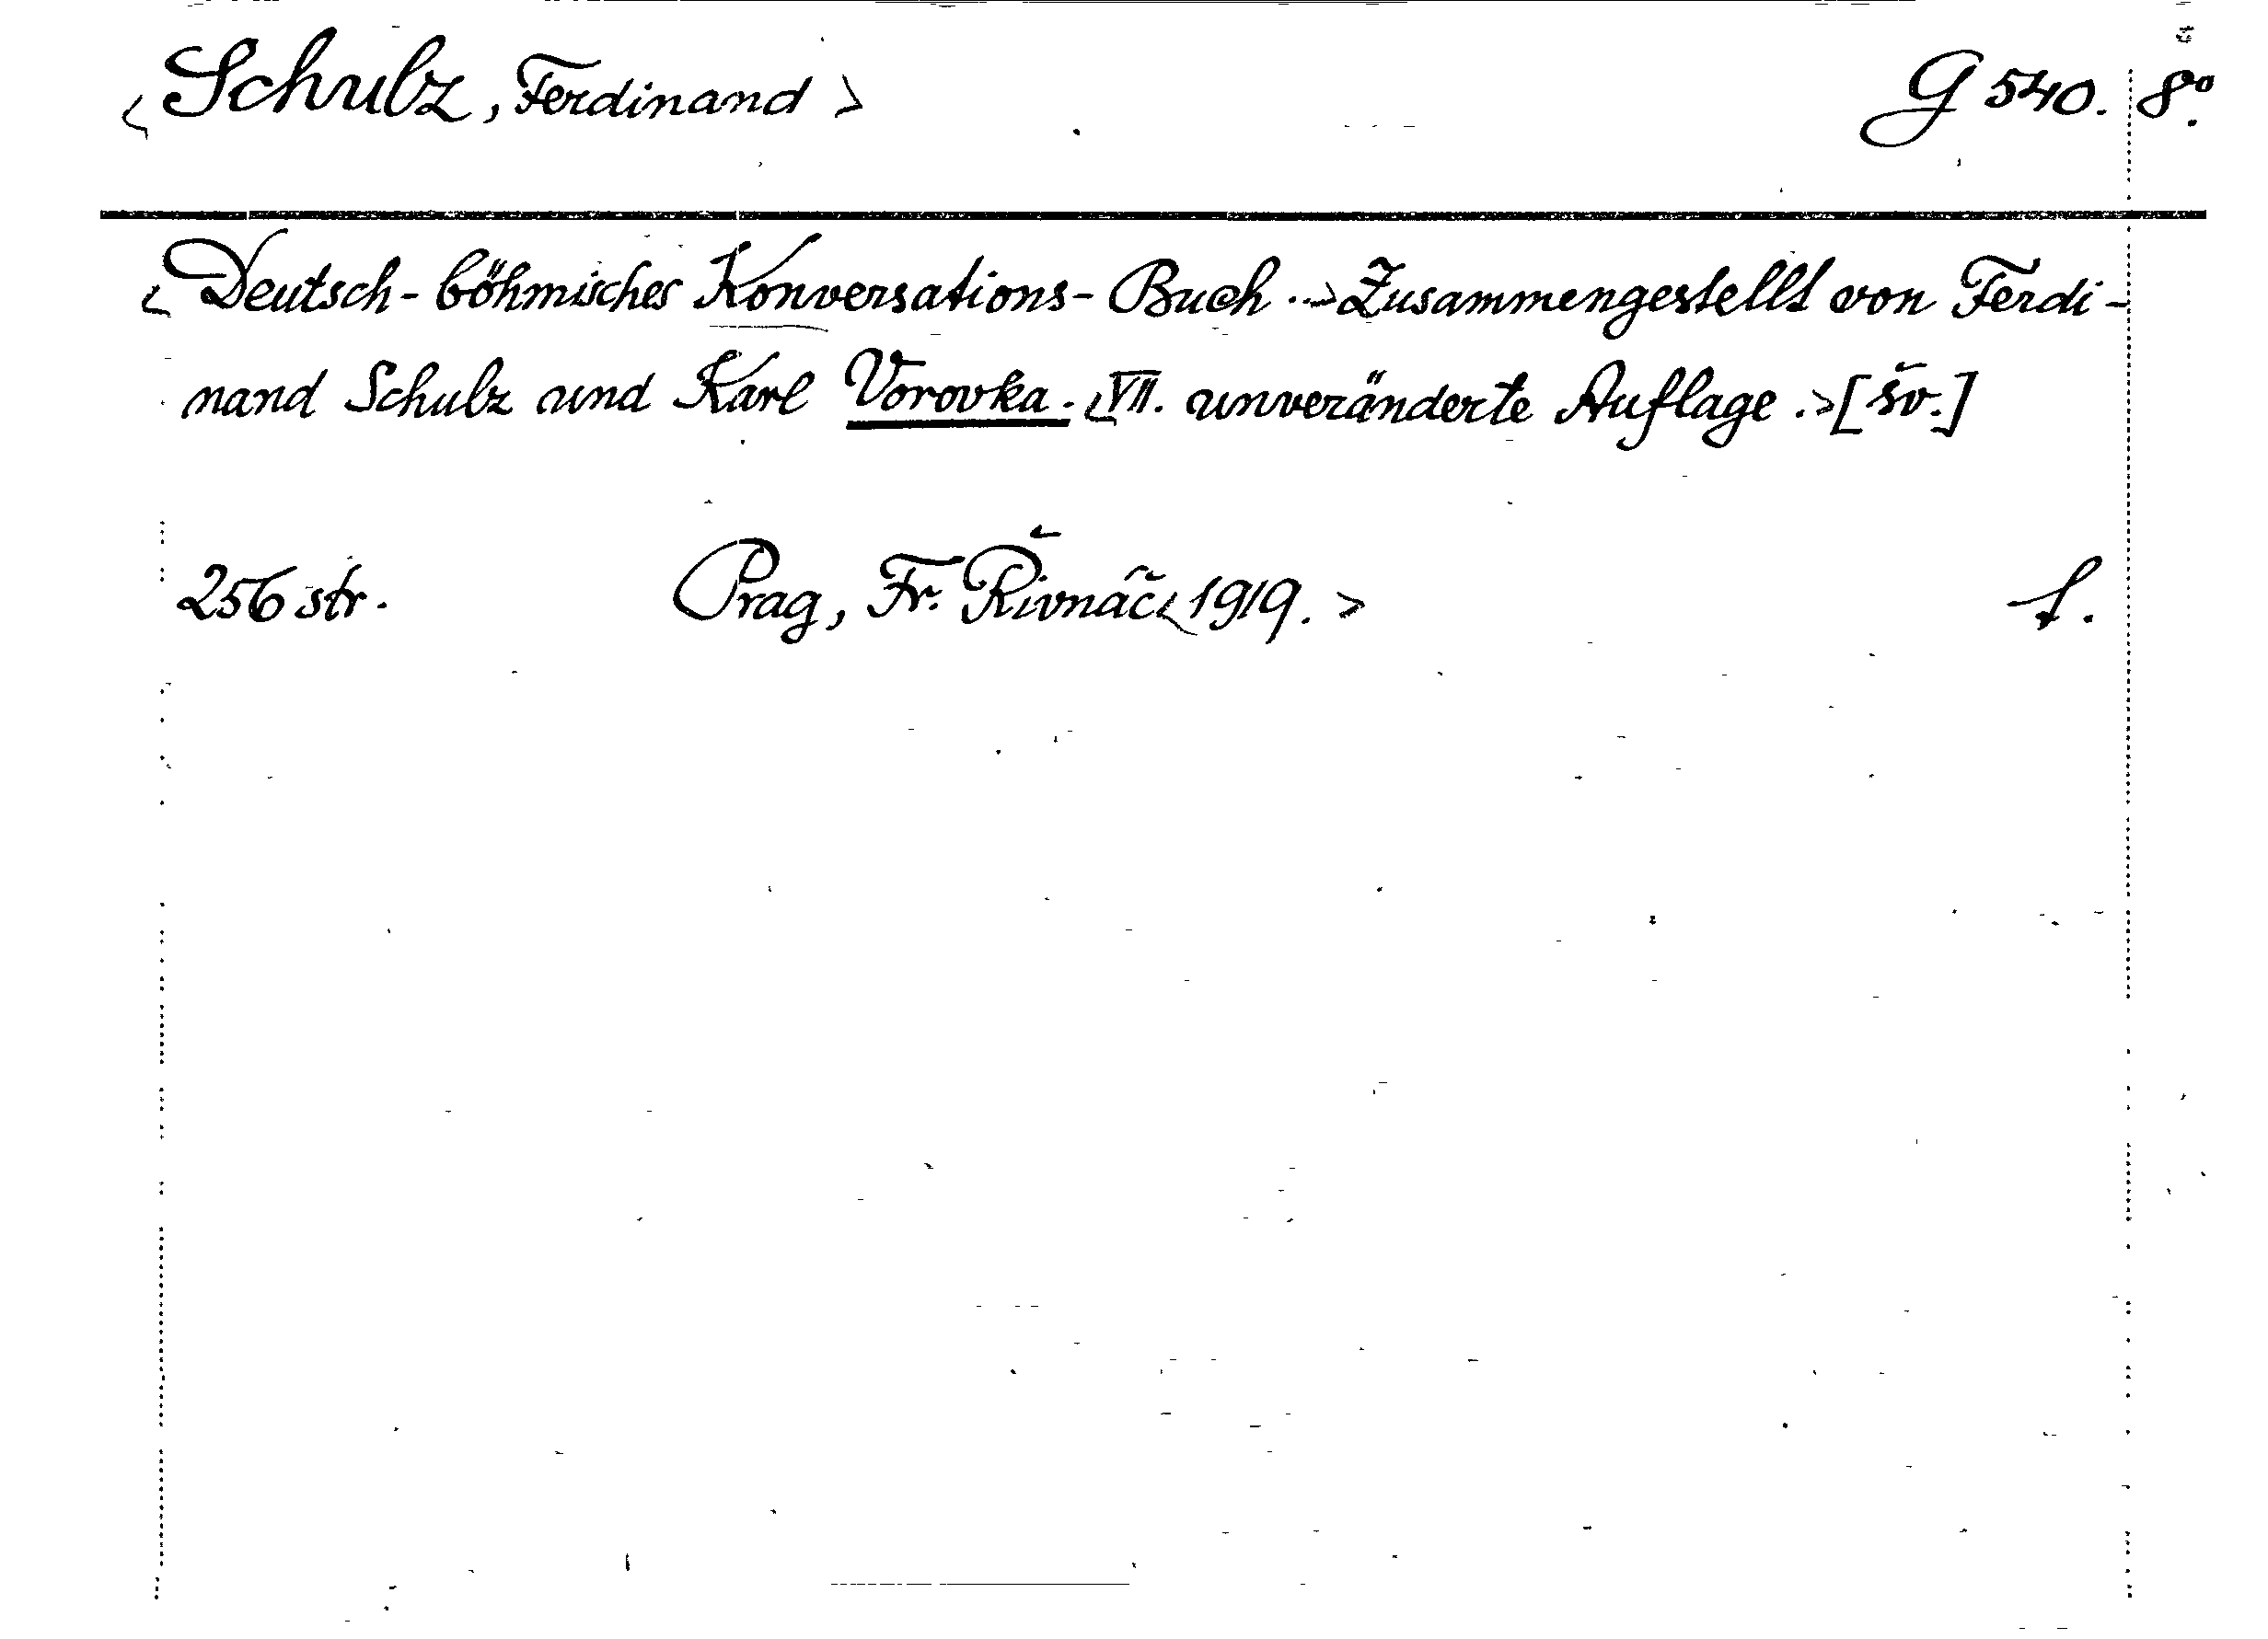 <Schulz, Ferdinand> G 540. 8º.
<Deutsch-böhmisches Konversations-Buch ..> Zusammengestellt von Ferdi-
nand Schulz und Karl Vorovka. <VII. unveränderte Auflage.> [šv.]
256 str. Prag, Fr. Řivnáč <1919.>